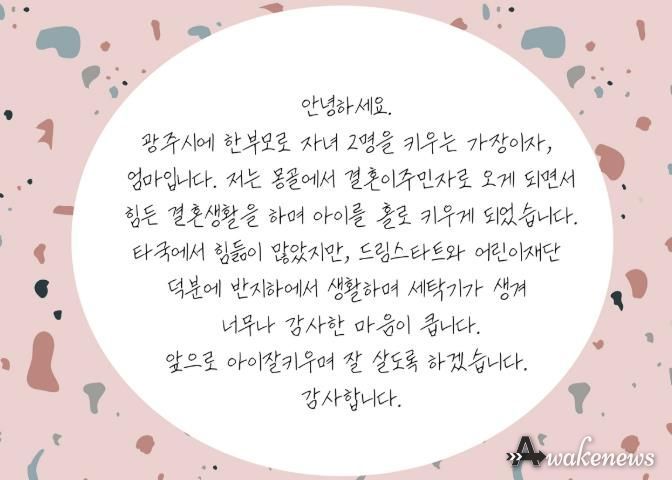 안녕하세요.
광주시에 한부모로 자녀 2명을 키우는 가장이자,
엄마입니다. 저는 몽골에서 결혼이주민자로 오게 되면서
힘든 결혼생활을 하며 아이를 홀로 키우게 되었습니다.
타국에서 힘듦이 많았지만, 드림스타트와 어린이재단
덕분에 반지하에서 생활하며 세탁기가 생겨
너무나 감사한 마음이 큽니다.
앞으로 아이잘키우며 잘 살도록 하겠습니다.
감사합니다.
Awakenews